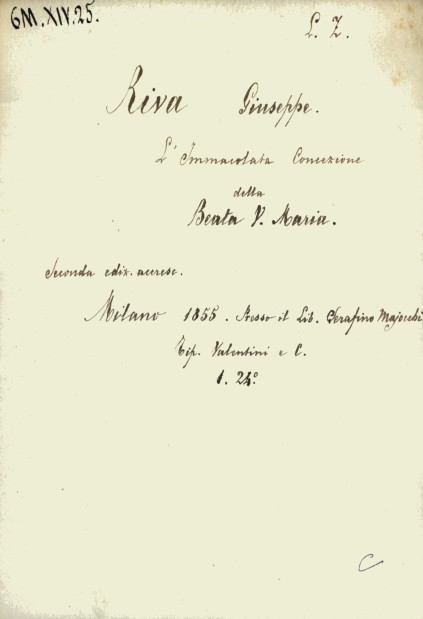 6M.XIV.25.
L. Z.
Riva Giuseppe.
L'Immacolata Concezione
della
Beata V. Maria.
Seconda ediz. accresc.
Milano 1855. Presso il Lib. Serafino Majocchi
Tip. Valentini e C.
1. 24º
C